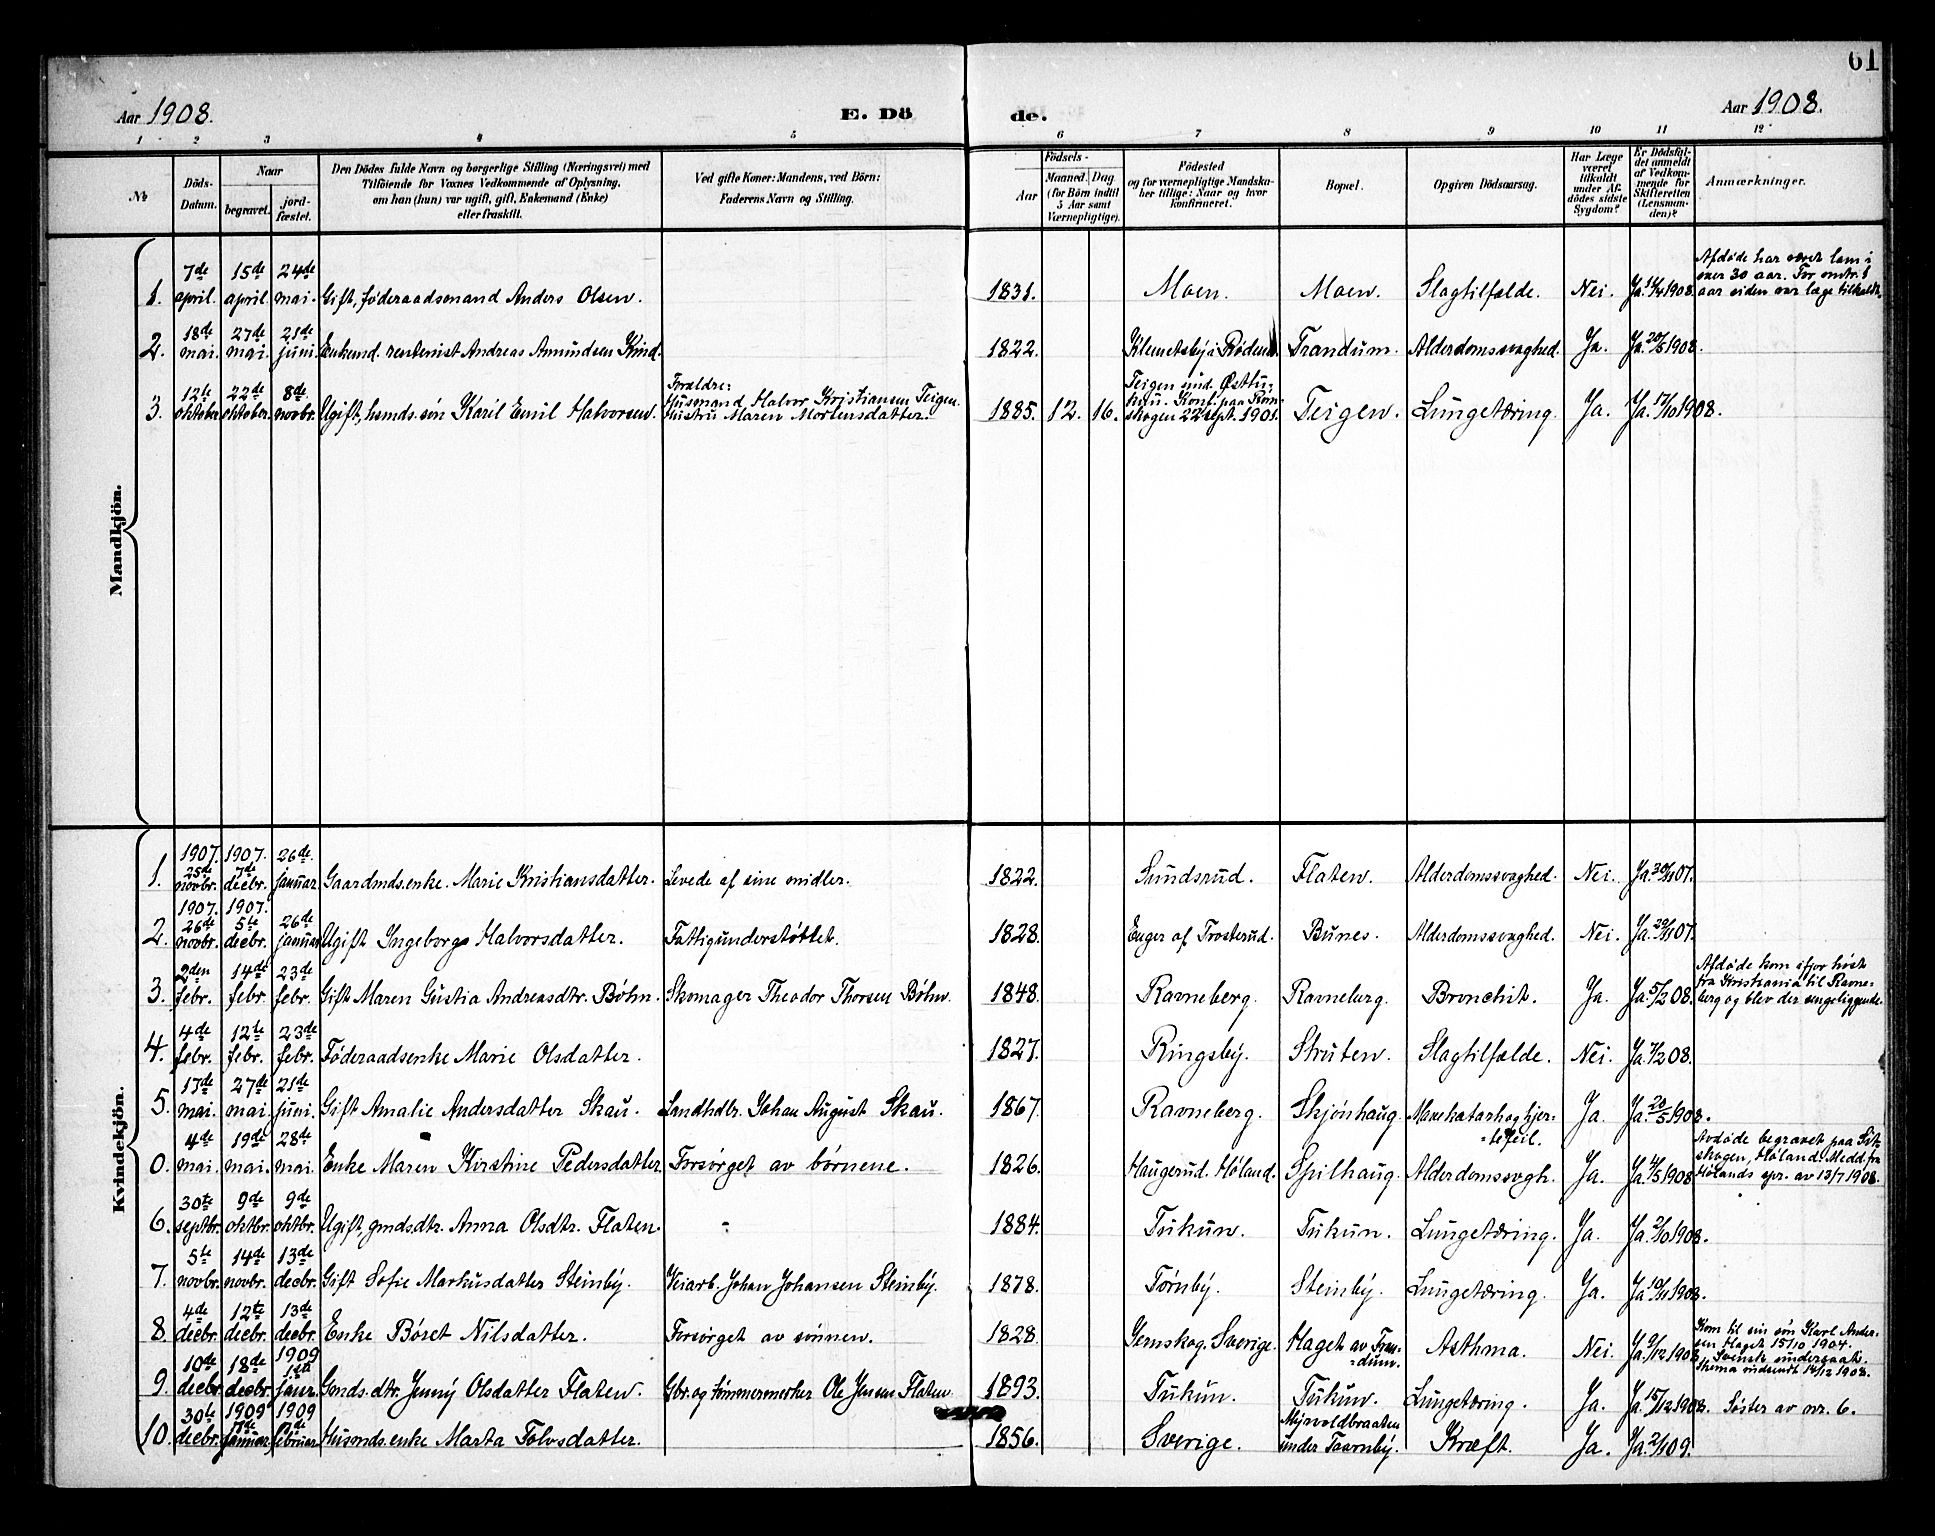 61
Aar 1908. E. Dö de. Aar 1908.
1 2 3 4 5 6 7 8 9 10 11 12
№ Döds-Datum. Naar begravet. jord-fæstet. Den Dödes fulde Navn og borgerlige Stilling (Næringsvei) med Tilföiende for Voxnes Vedkommende af Oplysning, om han (hun) var ugift, gift, Enkemand (Enke) eller fraskilt. Ved gifte Koner: Mandens, ved Börn: Faderens Navn og Stilling. Födsels- Aar Maaned. Dag. (for Börn indtil 5 Aar samt Værnepligtige). Födested og for værnepligtige Mandskaber tillige: Naar og hvor konfirmeret. Bopæl. Opgiven Dödsaarsag. Har Læge været tilkaldt under Afdödes sidste Sygdom? Er Dödsfaldet anmeldt af Vedkommende for Skifteretten (Lensmanden)? Anmærkninger.
Mandkjön.
1. 7de april. 15de april 24de mai. Gift, føderaadsmand Anders Olsen. 1831. Moen. Moen. Slagtilfælde. Nei. Ja. 14/4 1908. Afdøde har været lam i over 30 aar. For omtr. 1 aar siden var læge tilkaldt.
2. 18de mai. 27de mai. 21de juni. Enkemd. rentenist Andreas Amundsen Kind. 1822. Klemetsby i Rødenes. Trandum. Alderdomssvaghed. Ja. Ja. 20/5 1908.
3. 12te oktober 22de oktober. 8de novbr. Ugift, husmds.søn Karil Emil Halvorsen. Forældre: Husmand Halvor Kristiansen Teigen. Hustru Maren Mortensdatter. 1885. 12. 16. Teigen und. Østtu- Konf. paa Røm- skogen 22 sept. 1901. Teigen. Lungetæring. Ja. Ja. 17/10 1908.
Kvindekjön.
1. 1907. 25de novbr. 1907. 7de decbr. 26de januar. Gaardmds.enke. Marie Kristiansdatter. Levede af sine midler. 1822. Sundsrud. Flaten. Alderdomssvaghed. Nei. Ja. 30/11 07.
2. 1907. 26de novbr. 1907. 5te decbr. 26de januar Ugift Ingeborg Halvorsdatter. Fattigunderstøttet. 1828. Enger af Trosterud. Bunes. Alderdomssvaghed. Nei. Ja. 29/11 07.
3. 2den febr. 14de febr. 23de febr. Gift Maren Gustia Andreasdtr. Bøhn. Skomager Theodor Thorsen Bøhn. 1848. Ravneberg. Ravneberg. Bronchit. Ja. Ja. 5/2 08. Afdøde kom ifjor høst fra Kristiania til Ravneberg og blev der sengeliggende.
4. 4de febr. 12te febr. 23de febr. Føderaadsenke Marie Olsdatter. 1827. Ringsby. Struten. Slagtilfælde. Nei. Ja. 7/2 08.
5. 17de mai. 27de mai. 21de juni. Gift Amalie Andersdatter Skau. Landhdlr. Johan August Skau. 1867. Ravneberg. Skjønhaug. Mavekatarh og hjertefeil. Ja. Ja. 20/5 1908.
0. 4de mai. 19de mai. 28de mai. Enke Maren Kirstine Pedersdatter Forsørget av børnene. 1826. Haugerud. Høland. Spilhaug. Alderdomssvgh. Ja. Ja. 11/5 1908 Avdøde begravet paa Sitskogen, Høland. Medd. fra Hølands spr. av 13/7 1908.
6. 30te septbr. 9de oktbr. 9de oktbr. Ugift, gmds.dtr. Anna Olsdtr. Flaten. - 1884. Tukun. Tukun. Lungetæring. Ja. Ja. 2/10 1908.
7. 5te novbr. 14de novbr. 13de decbr. Gift Sofie Markusdatter Steinby. Veiarb. Johan Johansen Steinby. 1878. Tørnby. Steinby. Lungetæring. Ja. Ja 10/11 1908.
8. 4de decbr. 12te decbr. 13de decbr. Enke Børet Nilsdatter. Forsørget av sønnen. 1828. Jemskog, Sverige. Haget av Trandum. Asthma. Nei. Ja. 9/12 1908. Kom til sin søn Karl Andersen Haget 15/10 1904. Svensk undersaat. Skema indsendt 14/12 1908.
9. 10de decbr. 18de decbr. 1909 1ste janr. Gmds.dtr. Jenny Olsdatter Flaten. Gbr. og tømmermerker Ole Jensen Flaten 1893. Tukun. Tukun. Lungetæring. Ja. Ja. 15/12 1908. Søster av nr. 6.
10. 30te decbr. 1909 7de januar. 1909 7de februar Husmds.enke Marta Tolvsdatter. 1856. Sverige. Myrvoldbraaten under Taarnby. Kræft. Ja. Ja. 2/1 09.